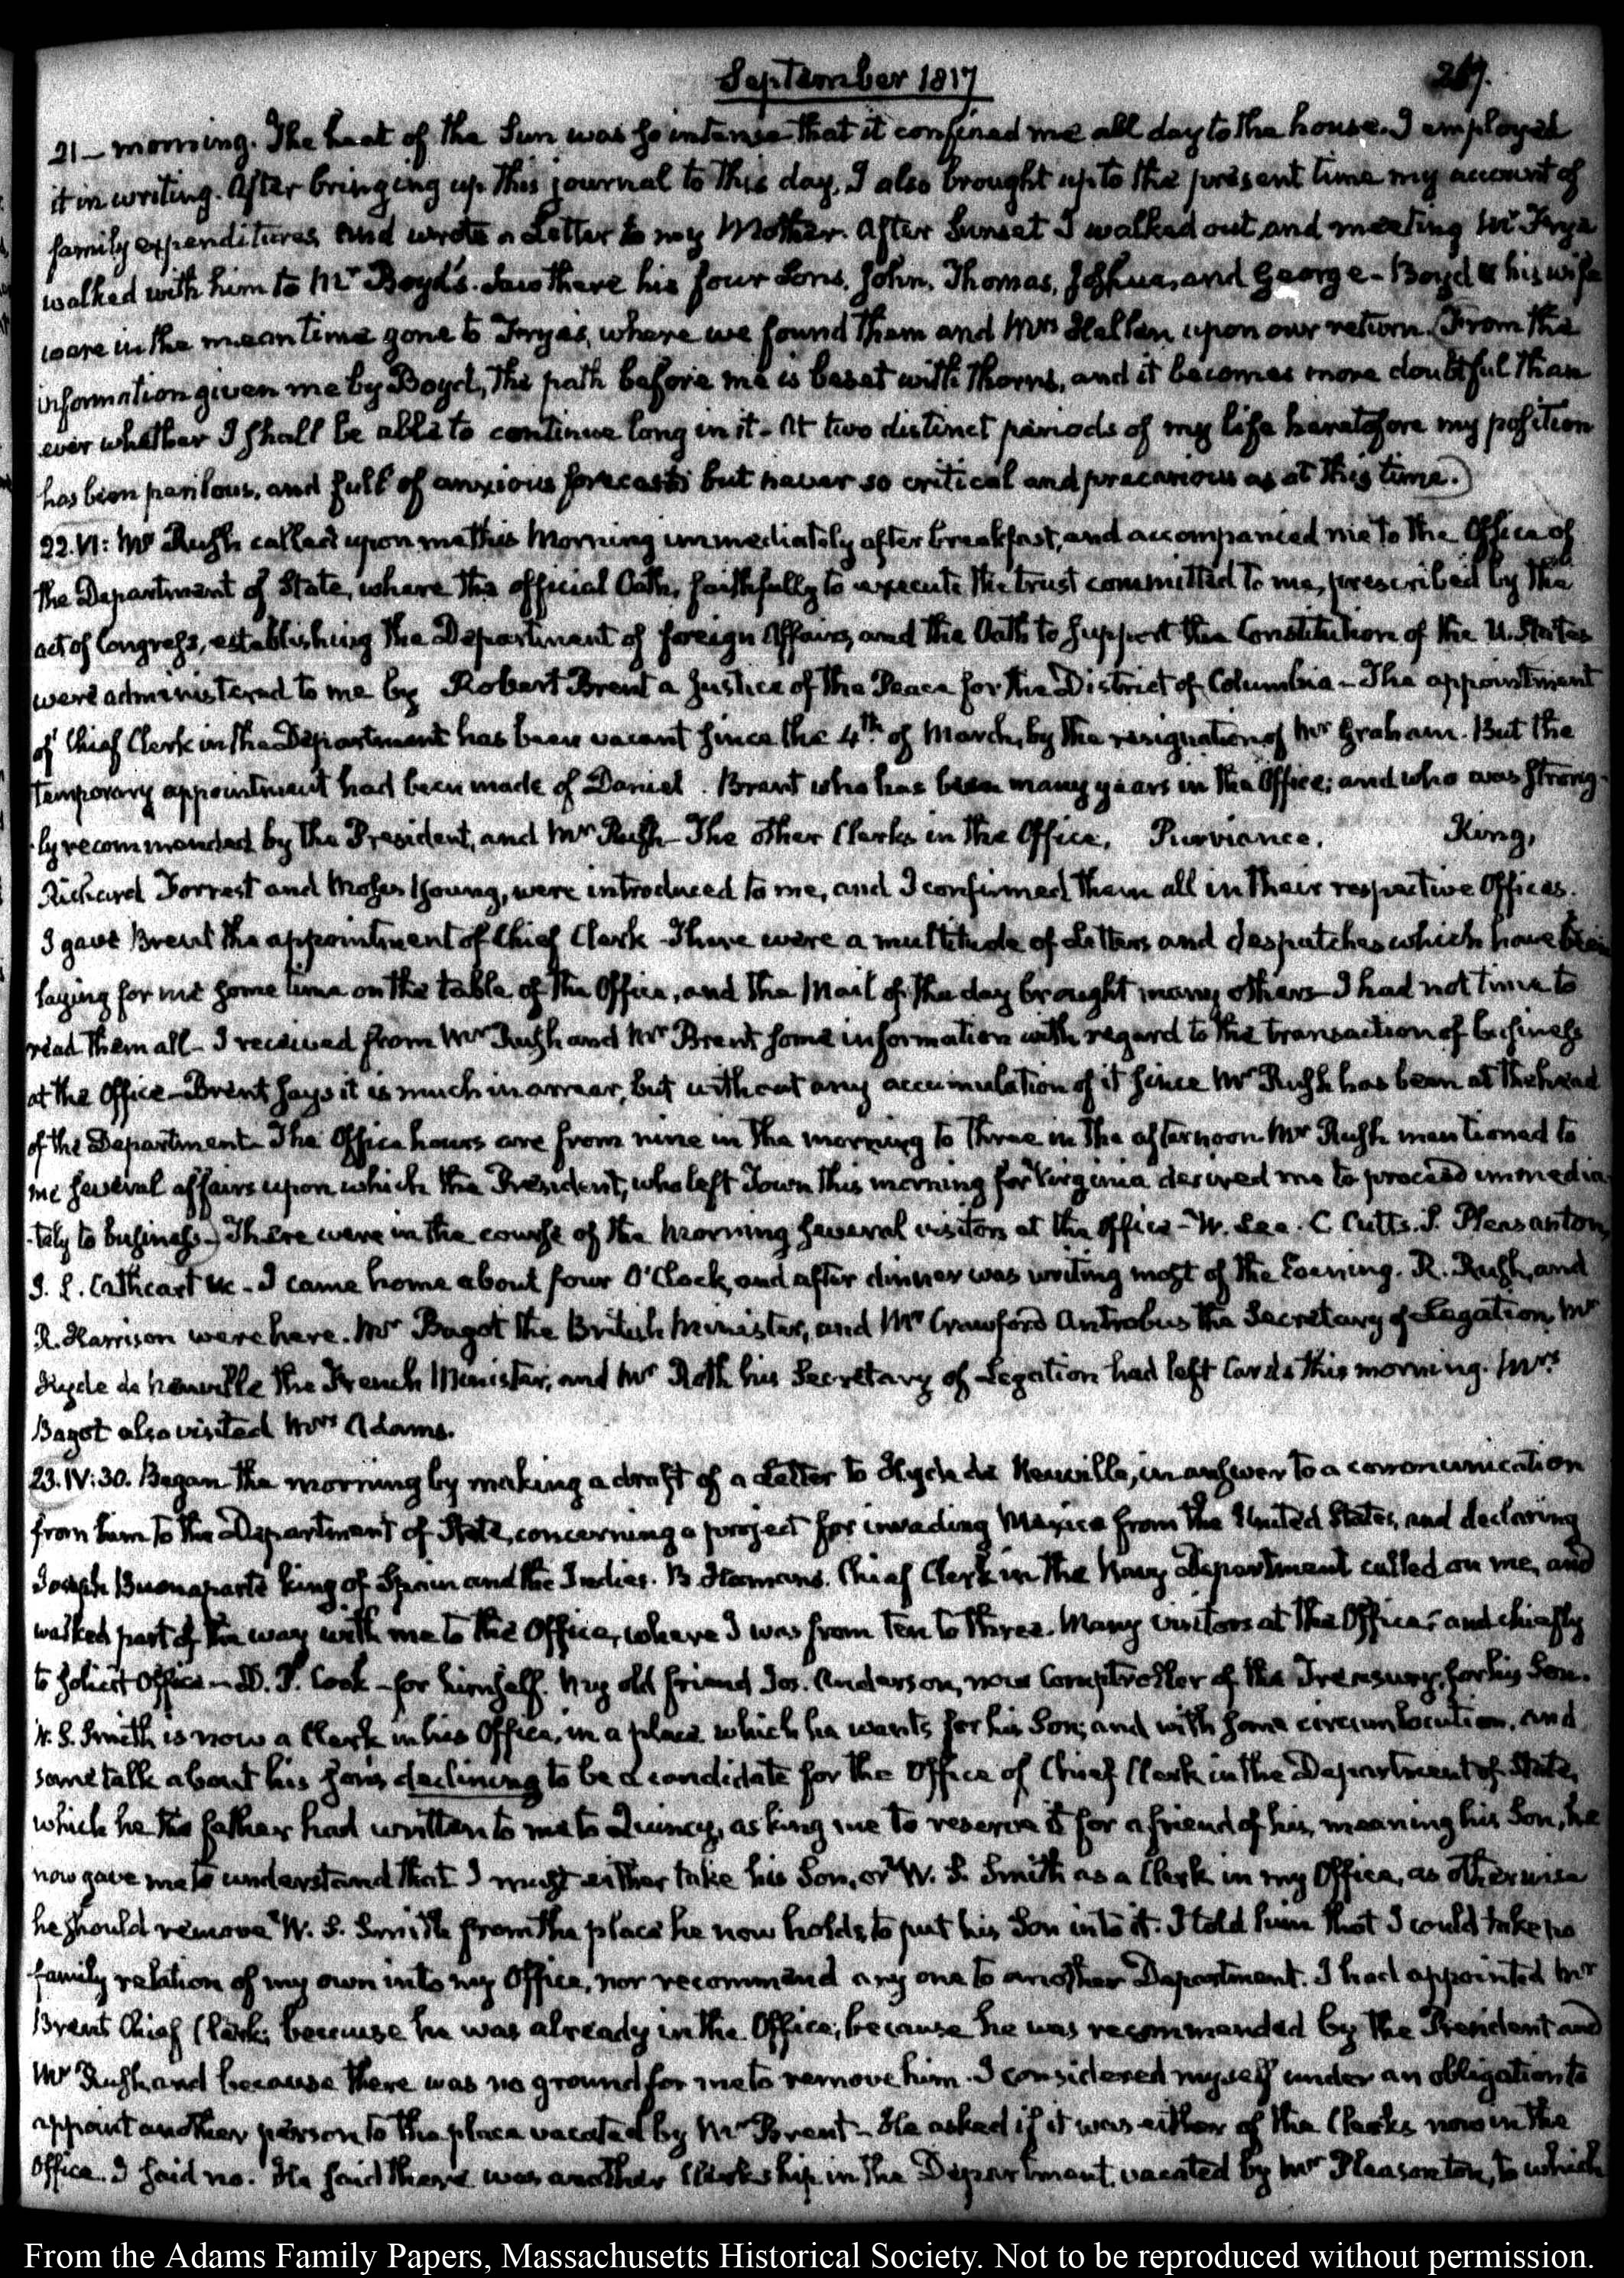 September 1817
267.
21 — morning. The heat of the Sun was so intense that it confined me all day to the house. I employed
it in writing. After bringing up this journal to this day, I also brought up to the present time my account of
family expenditures and wrote a Letter to my Mother. After Sunset I walked out, and meeting Mr Frye
walked with him to Mr Boyd's. Saw there his four Sons, John, Thomas, Joshua, and George — Boyd & his wife
were in the mean time gone to Frye's, where we found them and Mrs Hellen upon our return. (From the
information given me by Boyd, the path before me is beset with thorns, and it becomes more doubtful than
ever whether I shall be able to continue long in it — At two distinct periods of my life heretofore my position
has been perilous, and full of anxious forecast; but never so critical and precarious as at this time.)
22. VI: Mr Rush called upon me this Morning immediately after breakfast, and accompanied me to the Office of
the Department of State, where the official Oath, faithfully to execute the trust committed to me, prescribed by the
act of Congress, establishing the Department of foreign Affairs, and the Oath to support the Constitution of the U. States
were administered to me by Robert Brent a Justice of the Peace for the District of Columbia — The appointment
of Chief Clerk in the Department has been vacant since the 4th of March, by the resignation of Mr Graham. But the
temporary appointment had been made of Daniel . Brent who has been many years in the Office; and who was strong-
-ly recommended by the President, and Mr Rush — The other Clerks in the Office, Purviance, King,
Richard Forrest and Moses Young, were introduced to me, and I confirmed them all in their respective Offices.
I gave Brent the appointment of Chief Clerk — There were a multitude of Letters and despatches which have been
laying for me some time on the table of the Office, and the Mail of the day brought many others — I had not time to
read them all — I received from Mr Rush and Mr Brent some information with regard to the transaction of business
at the Office — Brent says it is much in arrear, but without any accumulation of it since Mr Rush has been at the head
of the Department — The Office hours are from nine in the morning to three in the afternoon. Mr Rush mentioned to
me several affairs upon which the President, who left Town this morning for Virginia desired me to proceed immedia-
-tely to business.) There were in the course of the morning several visitors at the Office — W. Lee. C. Cutts. S. Pleasanton,
J. L. Cathcart &c — I came home about four O'Clock, and after dinner was writing most of the Evening. R. Rush, and
R. Harrison were here. Mr Bagot the British Minister, and Mr Crawford Antrobus the Secretary of Legation, Mr
Hyde de Neuville the French Minister, and Mr Roth his Secretary of Legation had left Cards this morning. Mrs
Bagot also visited Mrs Adams.
23. IV: 30. Began the morning by making a draft of a Letter to Hyde de Neuville, in answer to a communication
from him to the Department of State, concerning a project for invading Mexico from the United States, and declaring
Joseph Buonaparte king of Spain and the Indies. B. Homans. Chief Clerk in the Navy Department called on me, and
walked part of the way with me to the Office, where I was from ten to three. Many visitors at the Office; and chiefly
to solicit Office — D. P. Cook — for himself. My old friend Jos. Anderson, now Comptroller of the Treasury, for his Son.
W. S. Smith is now a Clerk in his Office, in a place which he wants for his Son; and with some circumlocution, and
some talk about his son's declining to be a candidate for the Office of Chief Clerk in the Department of State,
which he the father had written to me to Quincy, asking me to reserve it for a friend of his, meaning his Son, he
now gave me to understand that I must either take his Son, or W. S. Smith as a Clerk in my Office, as otherwise
he should remove W. S. Smith from the place he now holds, to put his Son into it. I told him that I could take no
family relation of my own into my Office, nor recommend any one to another Department. I had appointed Mr
Brent Chief Clerk; because he was already in the Office; because he was recommended by the President and
Mr Rush, and because there was no ground for me to remove him. I considered myself under an obligation to
appoint another person to the place vacated by Mr Brent — He asked if it was either of the Clerks now in the
Office. I said no. He said there was another Clerkship in the Department, vacated by Mr Pleasonton, to which
From the Adams Family Papers, Massachusetts Historical Society. Not to be reproduced without permission.